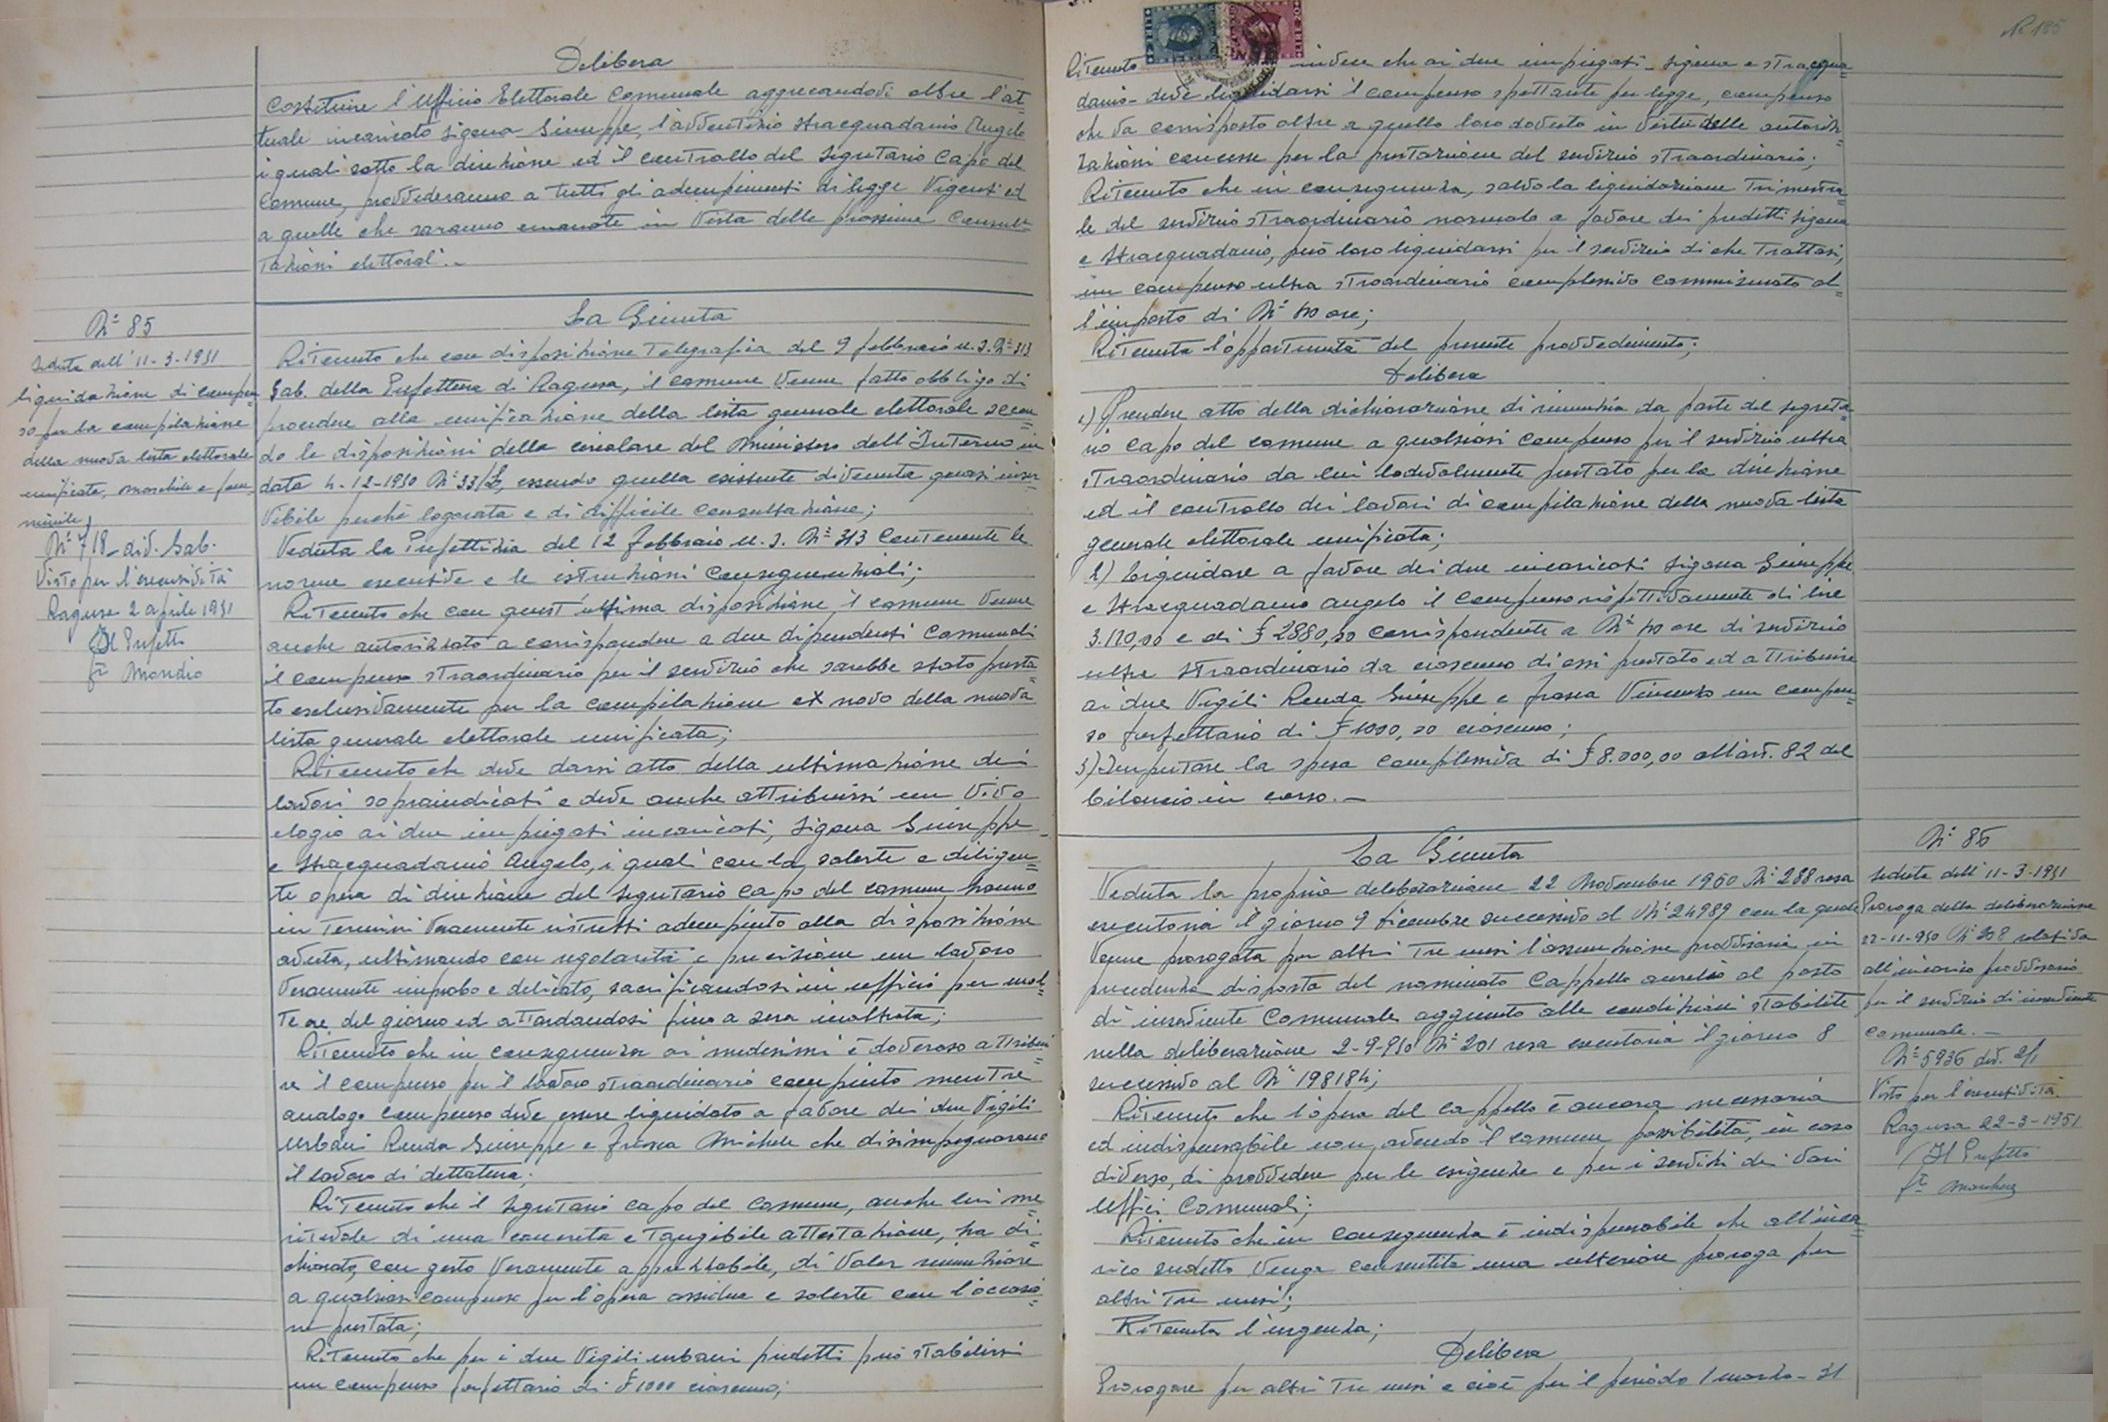 Delibera
Costituire l'Ufficio Elettorale Comunale aggregandovi oltre l'at=
tuale incaricato Sigona Giuseppe, l'avventizio Stracquadanio Angelo
i quali sotto la direzione ed il controllo del Segretario Capo del
Comune, provvederanno a tutti gli adempimenti di legge Vigenti ed
a quelle che saranno emanate in Vista delle prossime Consul=
tazioni elettorali.-
N° 85
Seduta dell'11-3-1951
liquidazione di compen
so per la compilazione
della nuova lista elettorale
unificata, maschile e fem=
minile,
N° 718 - div. Gab.
Visto per l'esecutività
Ragusa 2 aprile 1951
Il Prefetto
fto Mondio
La Giunta
Ritenuto che con disposizione telegrafica del 9 febbraio u.s. N° 313
Gab. della Prefettura di Ragusa, il comune Venne fatto obbligo di
procedere alla unificazione della lista generale elettorale secon
do le disposizioni della circolare del Ministero dell'Interno in
data 4-12-1950 N° 33/L, essendo quella esistente divenuta quasi inser=
vibile perchè logorata e di difficile consultazione;
Veduta la Prefettizia del 12 febbraio u.s. N° 313 Contenente le
norme esecutive e le istruzioni Consequenziali;
Ritenuto che con quest'ultima disposizione, il comune Venne
anche autorizzato a corrispondere a due dipendenti Comunali
il compenso straordinario per il servizio che sarebbe stato presta
to esclusivamente per la compilazione ex novo della nuova
lista generale elettorale unificata;
Ritenuto che deve darsi atto della ultimazione dei
lavori sopraindicati e deve anche attribuirsi un Vivo
elogio ai due impiegati incaricati, Sigona Giuseppe
e Stracquadanio Angelo, i quali con la solerte e diligen=
te opera di direzione del Segretario capo del comune hanno
in termini Veramente ristretti adempiuto alla disposizione
avuta, ultimando con regolarità e precisione un lavoro
Veramente improbo e delicato, sacrificandosi in ufficio per mol=
te ore del giorno ed attardandosi fino a sera inoltrata;
Ritenuto che in conseguenza ai medesimi è doveroso attribui
re il compenso per il lavoro straordinario compiuto mentre
analogo compenso deve essere liquidato a favore dei due Vigili
Urbani Renda Giuseppe e Frasca Michele che disimpegnarono
il lavoro di dettatura;
Ritenuto che il Segretario capo del comune, anche lui me=
ritevole di una concreta e tangibile attestazione, ha di=
chiarato, con gesto Veramente apprezzabile, di Voler rinunziare
a qualsiasi compenso per l'opera assidua e solerte con l'occasio=
ne prestata;
Ritenuto che per i due Vigili urbani predetti può stabilirsi
un compenso forfettario di £ 1000 ciascuno;
N° 185
Ritenuto invece che ai due impiegati - Sigona e Stracqua=
danio - deve liquidarsi il compenso spettante per legge, compenso
che va corrisposto oltre a quello loro dovuto in Virtù delle autoriz=
zazioni concesse per la prestazione del servizio straordinario;
Ritenuto che in conseguenza, salvo la liquidazione Trimestra
le del servizio straordinario normale a favore dei predetti Sigona
e Stracquadanio, può loro liquidarsi per il servizio di che trattasi,
un compenso ultra straordinario complessivo commisurato al=
l'importo di N° ore;
Ritenuta l'opportunità del presente provvedimento;
Delibera
1) Prendere atto della dichiarazione di rinunzia da parte del Segreta=
rio capo del comune a qualsiasi compenso per il servizio ultra
straordinario da lui lodevolmente prestato per la direzione
ed il controllo dei lavori di compilazione della nuova lista
generale elettorale unificata;
2) Liquidare a favore dei due incaricati Sigona Giuseppe
e Stracquadanio Angelo il compenso rispettivamente di lire
3.120,00 e di £ 2880,00 corrispondente a N° ore di servizio
ultra straordinario da ciascuno di essi prestato ed attribuire
ai due Vigili Renda Giuseppe e Frasca Vincenzo un compen=
so forfettario di £ 1000,00 ciascuno;
3) Imputare la spesa complessiva di £ 8.000,00 all'art. 82 del
bilancio in corso.-
N° 86
Seduta dell'11-3-1951
Proroga della deliberazione
22-11-950 N° relativa
all'incarico provvisorio
per il servizio di inserviente
comunale.-
N° 5936 div. 2/1
Visto per l'esecutività.
Ragusa 22-3-1951
Il Prefetto
fto
La Giunta
Veduta la propria deliberazione 22 Novembre 1950 N° 288 resa
esecutoria il giorno 9 dicembre successivo al N° 24989 con la quale
Venne prorogata per altri tre mesi l'assunzione provvisoria in
precedenza disposta del nominato Cappello Aurelio al posto
di inserviente Comunale aggiunto alle condizioni stabilite
nella deliberazione 2-9-950 N° 201 resa esecutoria il giorno 8
successivo al N° 198184;
Ritenuto che l'opera del Cappello è ancora necessaria
ed indispensabile non avendo il comune possibilità, in caso
diverso, di provvedere per le esigenze e per i servizi dei vari
Uffici Comunali;
Ritenuto che in conseguenza è indispensabile che all'inca=
rico suddetto Venga consentita una ulteriore proroga per
altri tre mesi;
Ritenuta l'urgenza;
Delibera
Prorogare per altri tre mesi e cioè per il periodo 1 marzo - 31